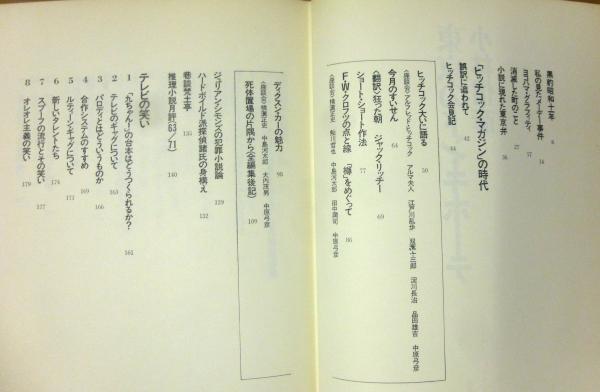 黒豹昭和十年 8
私の見たメーデー事件 14
ヨコハマ・グラフィティ 27
消滅した町のこと 37
小説に現れた東京弁 38
「ヒッチコック・マガジン」の時代
誤訳に追われて 42
ヒッチコック会見記 44
ヒッチコック大いに語る 50
〈座談会〉アルフレッド・ヒッチコック アルマ夫人 江戸川乱歩 双葉十三郎 淀川長治 品田雄吉 中原弓彦
今月のすいせん 64
〈翻訳〉狂った朝 ジャック・リッチー 69
ショート・ショート作法 77
F・W・クロフツの点と線 「樽」をめぐって 86
〈座談会〉横溝正史 鮎川哲也 中島河太郎 田中潤司 中原弓彦
ディクスン・カーの魅力 98
〈座談会〉横溝正史 中島河太郎 大内茂男 中原弓彦
死体置場の片隅から〈全編集後記〉 109
ジュリアン・シモンズの犯罪小説論 129
ハードボイルド派探偵諸氏の身構え 132
巷談梵士亭 135
推理小説月評〈63/71〉 140
テレビの笑い
1 「九ちゃん!」の台本はどうつくられるか? 161
2 テレビのギャグについて 163
3 パロディとはどういうものか 166
4 合作システムのすすめ 169
5 ルティーン・ギャグについて 171
6 新しいタレントたち 174
7 スプーフの流行とその笑い 177
8 オレオレ主義の笑い 179